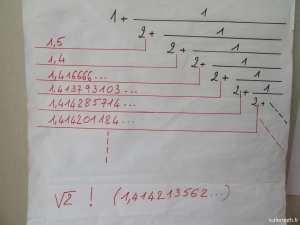 1 + 1
2 + 1
1,5
2 + 1
1,4
2 + 1
1,416666...
2 + 1
1,413793103...
2 +
1,414285714...
1,414201184...
√2 ! (1,414213562...)
kalemath.fr